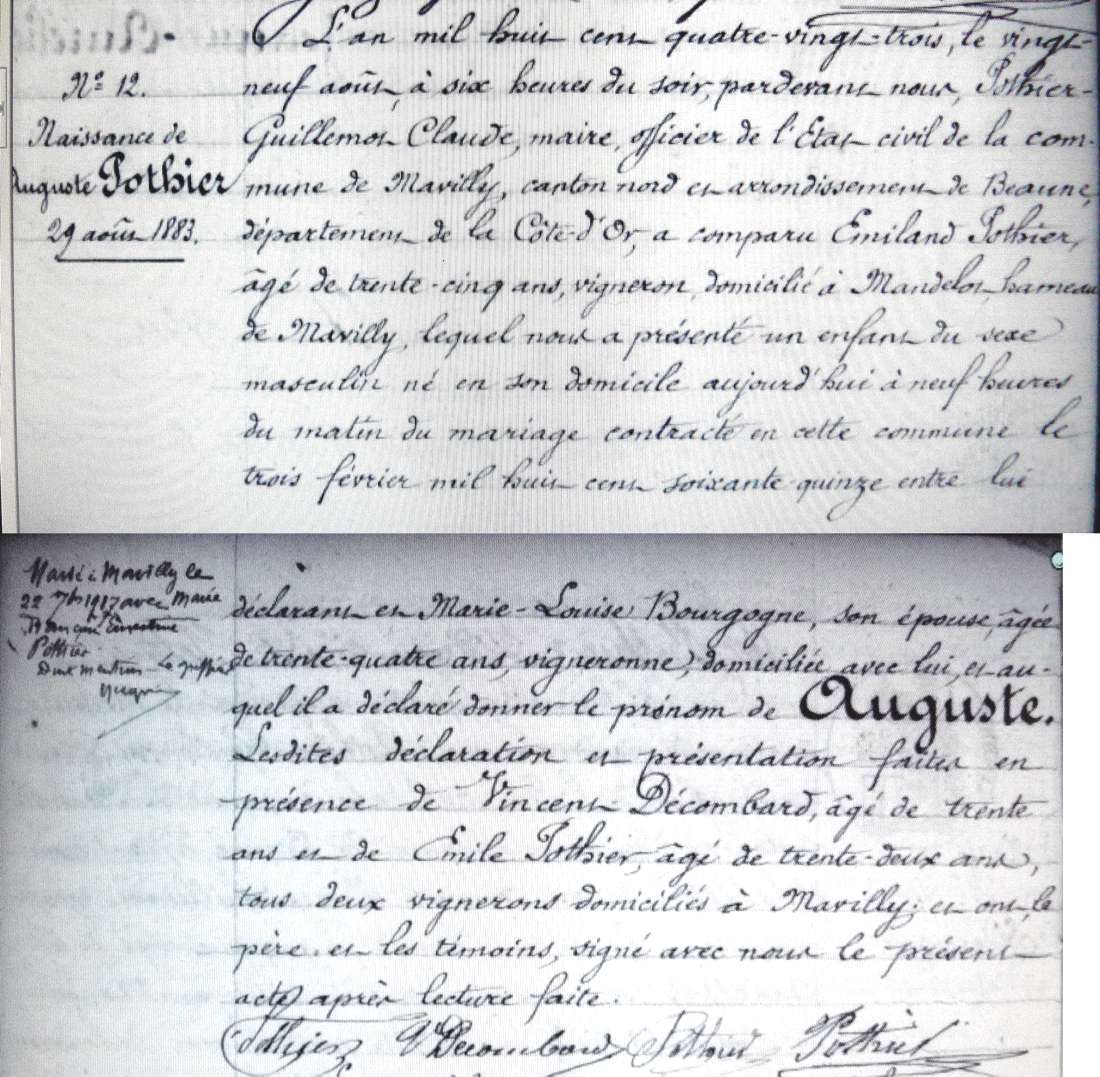 Nº 12.
Naissance de
Auguste Pothier
29 août 1883.
L'an mil huit cent quatre-vingt-trois, le vingt-
neuf août, à six heures du soir, pardevant nous, Pothier-
Guillemot Claude, maire, officier de l'Etat civil de la com-
mune de Mavilly, canton nord et arrondissement de Beaune,
département de la Côte-d'Or, a comparu Emiland Pothier,
âgé de trente-cinq ans, vigneron, domicilié à Mandelot, hameau
de Mavilly, lequel nous a présenté un enfant du sexe
masculin né en son domicile aujourd'hui à neuf heures
du matin du mariage contracté en cette commune le
trois février mil huit cent soixante-quinze entre lui
Marié à Mavilly le
22 7bre 1917 avec Marie
Ernestine
Pothier
Dont mention
déclarant et Marie-Louise Bourgogne, son épouse, âgée
de trente-quatre ans, vigneronne, domiciliée avec lui, et au-
quel il a déclaré donner le prénom de Auguste.
Lesdites déclaration et présentation faites en
présence de Vincent Décombard, âgé de trente
ans et de Emile Pothier, âgé de trente-deux ans,
tous deux vignerons domiciliés à Mavilly; et ont, le
père et les témoins, signé avec nous le présent
acte après lecture faite.
Pothier V Décombard Pothier Pothier